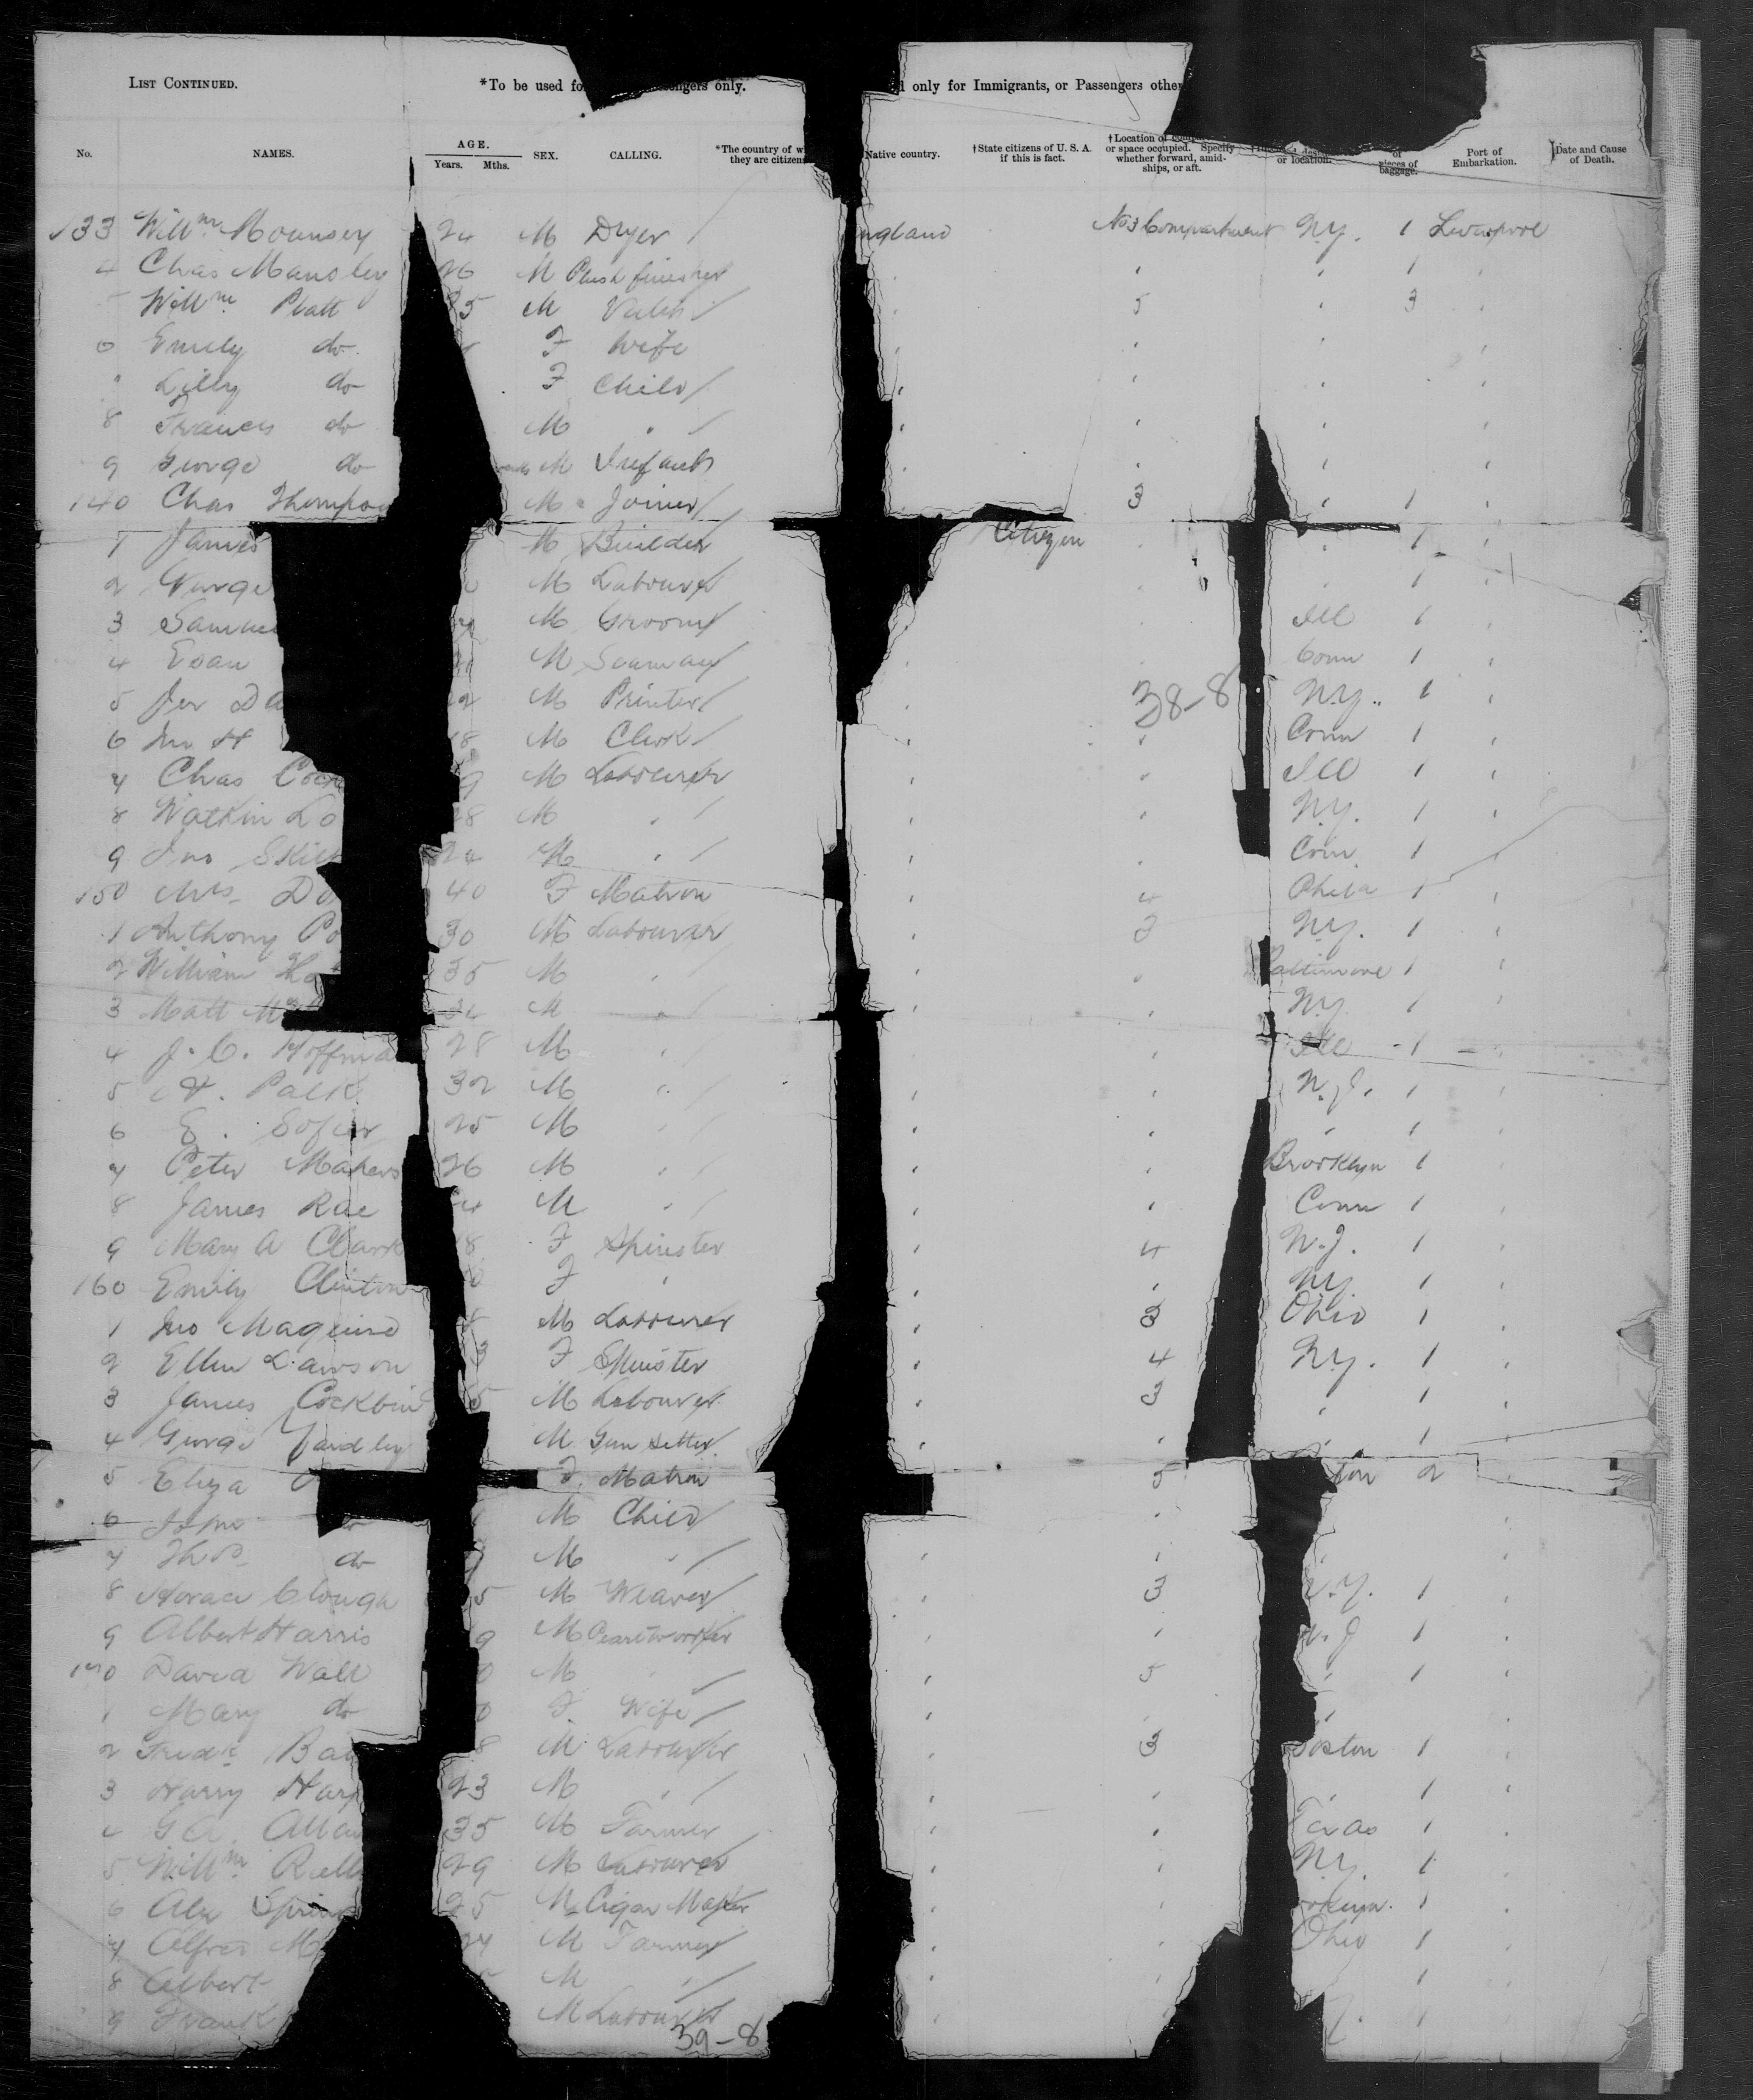 LIST CONTINUED. *To be used fo ngers only. only for Immigrants, or Passengers other
No. NAMES. AGE. Years. Mths. SEX. CALLING. *The country of w they are citizens Native country. †State citizens of U. S. A. if this is fact. †Location of or space occupied. Specify whether forward, amidships, or aft. or location. of pieces of baggage. Port of Embarkation. Date and Cause of Death.
133 Willm Mounsey 24 M Dyer ngland No 3 Compartment N.Y. 1 Liverpool
4 Chas 26 M Plush finisher 1
Willm Platt 35 M 5 3
6 Emily do F Wife
Lilly do F Child
8 Francis do M "
9 George do M Infant
140 Chas Thompson M Joiner 3 1
1 James M Builder Citizen 1
2 George M Labourer 1
3 Samuel M Groom Ill 1
4 Evan M Seaman Conn 1
5 Jer Da 22 M Printer 38-8 N.Y. 1
6 Jno H 18 M Clerk Conn 1
7 Chas Cock 9 M Labourer Ill 1
8 Watkin Lo 28 M " N.Y. 1
9 Jno Skil 24 M " Conn 1
150 Mrs Do 40 F Matron 4 Phila 1
1 Anthony Po 30 M Labourer 3 N.Y. 1
2 William Ho 35 M " Baltimore 1
3 Matt M 24 M " N.Y. 1
4 J. C. Hoffma 28 M " Ill 1
5 H. Palk 32 M " N.J. 1
6 E. 25 M " " 1
7 Peter Makers 26 M " Brooklyn 1
8 James Rae 4 M " Conn 1
9 Mary A Clark 18 F Spinster 4 N.J. 1
160 Emily Clinton 0 F " N.Y. 1
1 Jno Maguire M Labourer 3 Ohio 1
2 Ellen Lawson 3 F Spinster 4 N.Y. 1
3 James Cockbin 5 M Labourer 3 " 1
4 George Yardley M Gem Setter " 1
5 Eliza F. Matron 5 ton 2
6 do M Child
7 Thos do M "
8 Horace Clough 5 M Weaver 3 N.Y. 1
9 Albert Harris 9 M Pearl worker N.J 1
170 David Wall 0 M " 5 " 1
1 Mary do 0 F. Wife
2 Fredk Ba 8 M Labourer 3 Boston 1
3 Harry Harp 23 M " " 1
4 G A. Allan 35 M Farmer Texas 1
5 Willm 29 M Labourer N.Y. 1
6 Alex Spin 25 M Cigar Maker ooklyn. 1
7 Alfred M 27 M Farmer Ohio 1
8 Albert M " 1
9 Frank M Labourer Y. 1
39-8